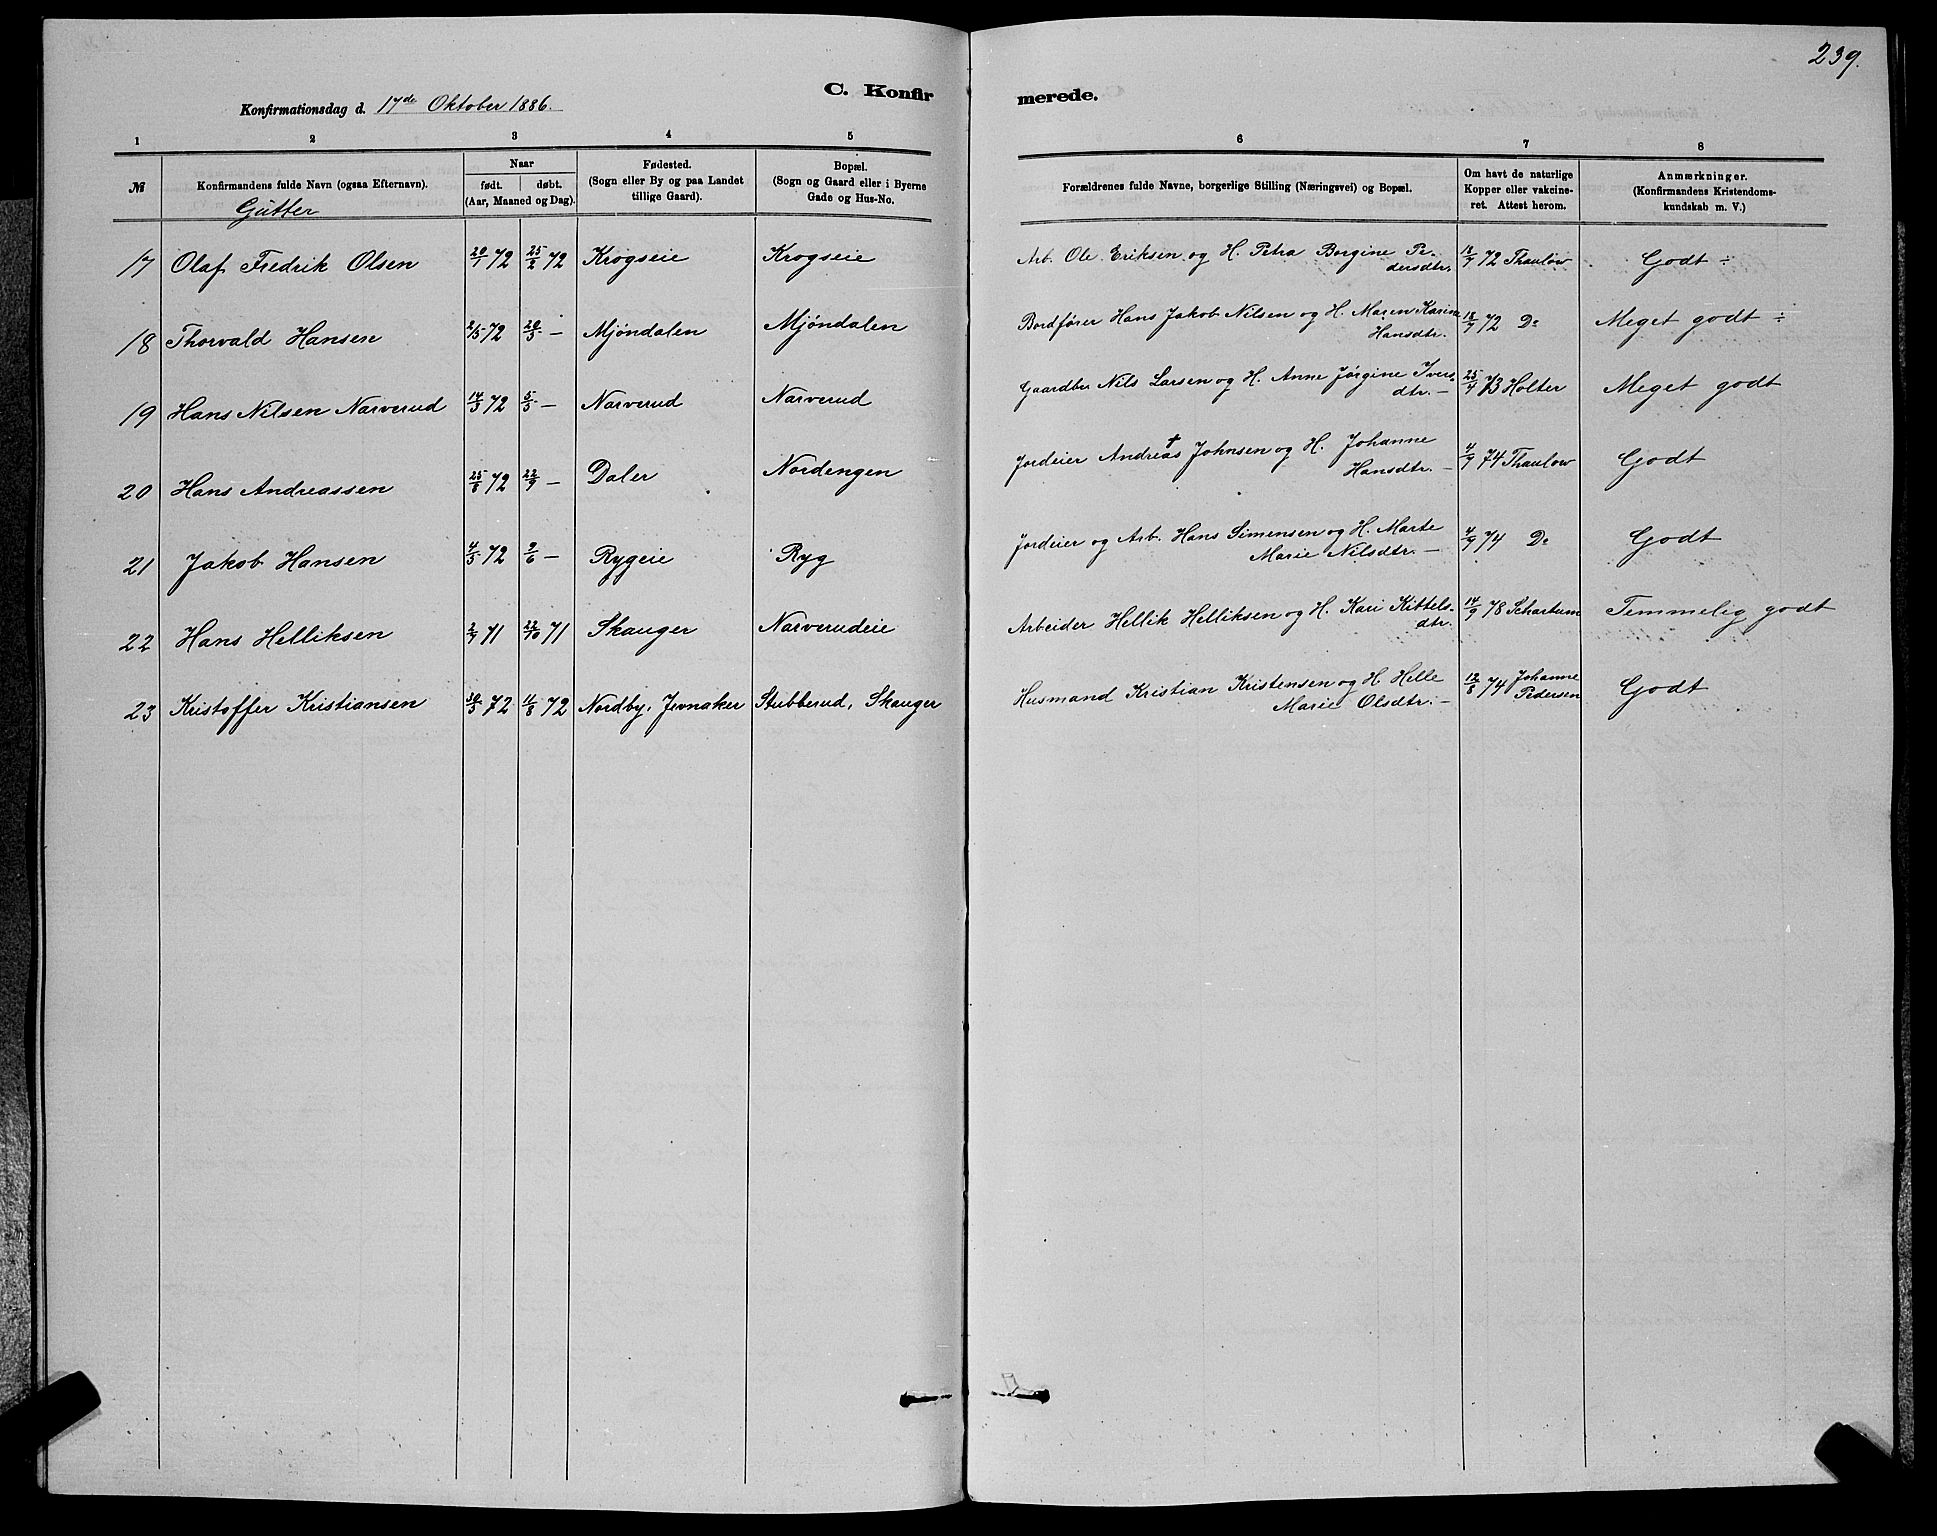 239.
C. Konfirmerede.
Konfirmationsdag d. 17de Oktober 1886.
1 2 3 4 5 6 7 8
№ Konfirmandens fulde Navn (ogsaa Efternavn). Naar født. døbt. (Aar, Maaned og Dag). Fødested. (Sogn eller By og paa Landet tillige Gaard). Bopæl. (Sogn og Gaard eller i Byerne Gade og Hus-No. Forældrenes fulde Navne, borgerlige Stilling (Næringsvei) og Bopæl. Om havt de naturlige Kopper eller vakcineret. Attest herom. Anmærkninger. (Konfirmandens Kristendomskundskab m. V.)
Gutter
17 Olaf Fredrik Olsen 20/1 72 25/2 72 Krogseie Krogseie Arb. Ole Eriksen og H. Petra Borgine Pedersdtr. 18/7 72 Thaulow Godt ÷
18 Thorvald Hansen 2/5 72 20/5 — Mjöndalen Mjöndalen Bordfører Hans Jakob Nilsen og H. Maren Karine Hansdtr. 18/7 72 Do Meget godt ÷
19 Hans Nilsen Narverud 14/3 72 5/5 — Narverud Narverud Gaardbr Nils Larsen og H. Anne Jørgine Iversdtr. — 25/4 73 Holter Meget godt
20 Hans Andreassen 25/8 72 22/9 — Daler Nordengen Jordeier Andreas † Johnsen og H. Johanne Hansdtr. — 4/9 74 Thaulow Godt
21 Jakob Hansen 4/5 72 9/6 — Rygeie Ryg Jordeier og Arb. Hans Simensen og H. Marte Marie Nilsdtr. — 4/9 74 Do Godt
22 Hans Helliksen 2/7 71 22/10 71 Skauger Narverudeie Arbeider Hellik Helliksen og H. Kari Kittelsdtr. 14/9 78 Schartum Temmelig godt
23 Kristoffer Kristiansen 30/5 72 11/8 72 Nordby, Jevnaker Stubberud, Skauger Husmand Kristian Kristensen og H. Helle Marie Olsdtr. — 12/8 74 Johanne Pedersen Godt